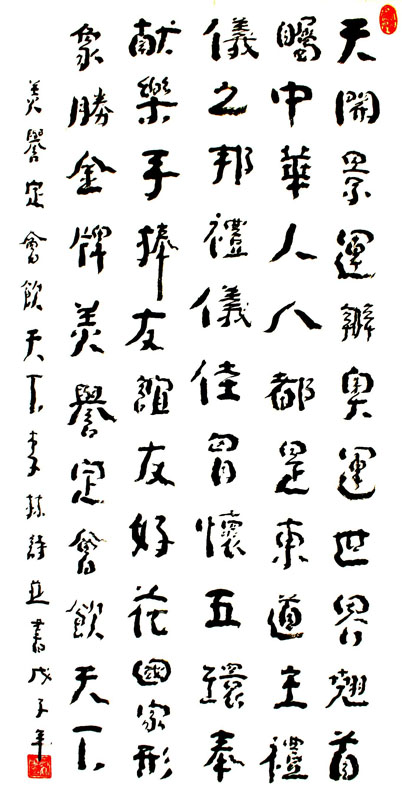 天開景運辦奧運世界翹首
矚中華人人都是東道主禮
儀之邦禮儀佳胷懷五環奉
献樂手捧友誼友好花國家形
象勝金牌美譽定會飲天下
美譽定會飲天下李詩並書戊子年